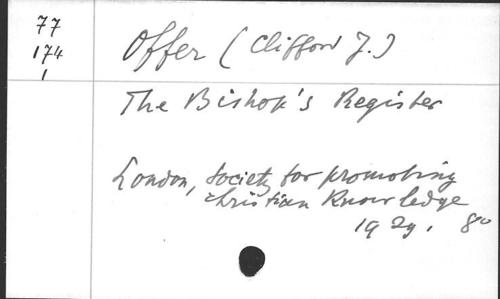 77
174
1
Offer (Clifford J.)
The Bishop's Register
London, Society for promoting
christian Knowledge
1929. 8º